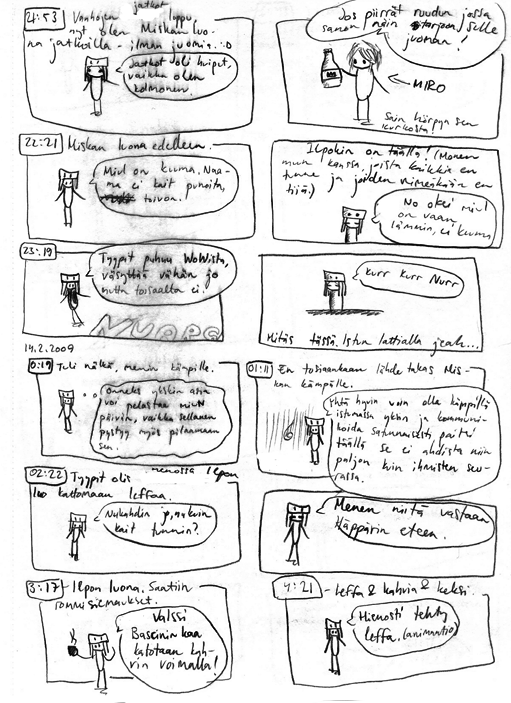 21:53 Vanhojen jatkot loppu
nyt olen Miskan luo-
na jatkoilla - ilman juomia. :D
Jatkot oli huiput,
vaikka olen
kolmonen.
Jos piirrät ruudun jossa
sanon näin tarjoon sulle
juoman!
← MIRO
Sain hörpyn sen
kurkosta!
22:21 Miskan luona edelleen.
Miul on kuuma. Naa-
ma ei kait punoita,
toivon.
Ilpokin on täällä! (Monen
muun kanssa, joista kaikkia en
tunne ja joiden nimeäkään en
tiiä.)
No okei miul
on vaan
lämmin, ei kuuma
23:19
Tyypit puhuu WoWista,
väsyttää vähän jo
mutta toisaalta ei.
NUORA
kurr kurr Nurr
Mitäs tässä. Istun lattialla jeah...
14.2.2009
0:19 Tuli nälkä, menin kämpille.
onneks yksikin asia
voi pelastaa miun
päivän, vaikka sellanen
pystyy myös pilaamaan
sen.
01:11 En tosiaankaan lähde takas Mis-
kan kämpälle.
Yhtä hyvin voin olla käppillä
istumassa yksin ja kommuni-
koida satunnaisesti, paitsi
täällä se ei ahdista niin
paljon kuin ihmisten seu-
rassa.
02:22 Tyypit olis menossa Ilpon
luo kattomaan leffaa.
Nukahdin jo, nukuin
kait tunnin?
Menen niitä vastaan
Häppärin eteen.
3:17 - Ilpon luona. Saatiin
rommisiemaukset.
Valssi
Baseinin kaa
katotaan kah-
vin voimalla!
4:21 - Leffa & kahvia & keksi.
Hienosti tehty
leffa. (animaatio)